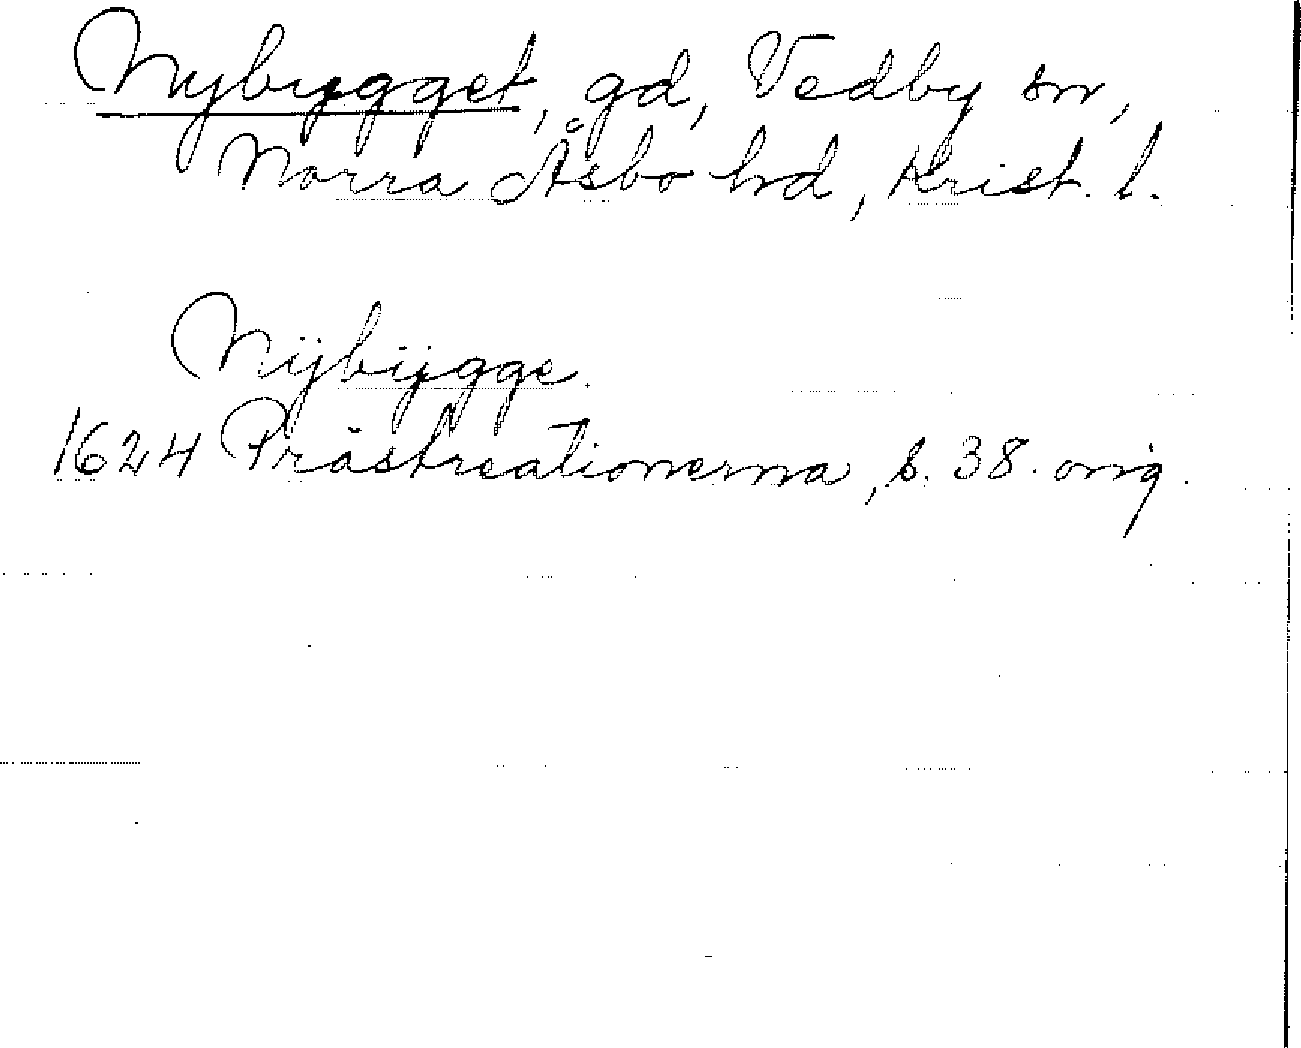 Nybygget, gd, Vedby sn,
Norra Åsbo hd, Krist. l.
Nÿbÿgge.
1624 Prästreationerna, s. 38. orig.